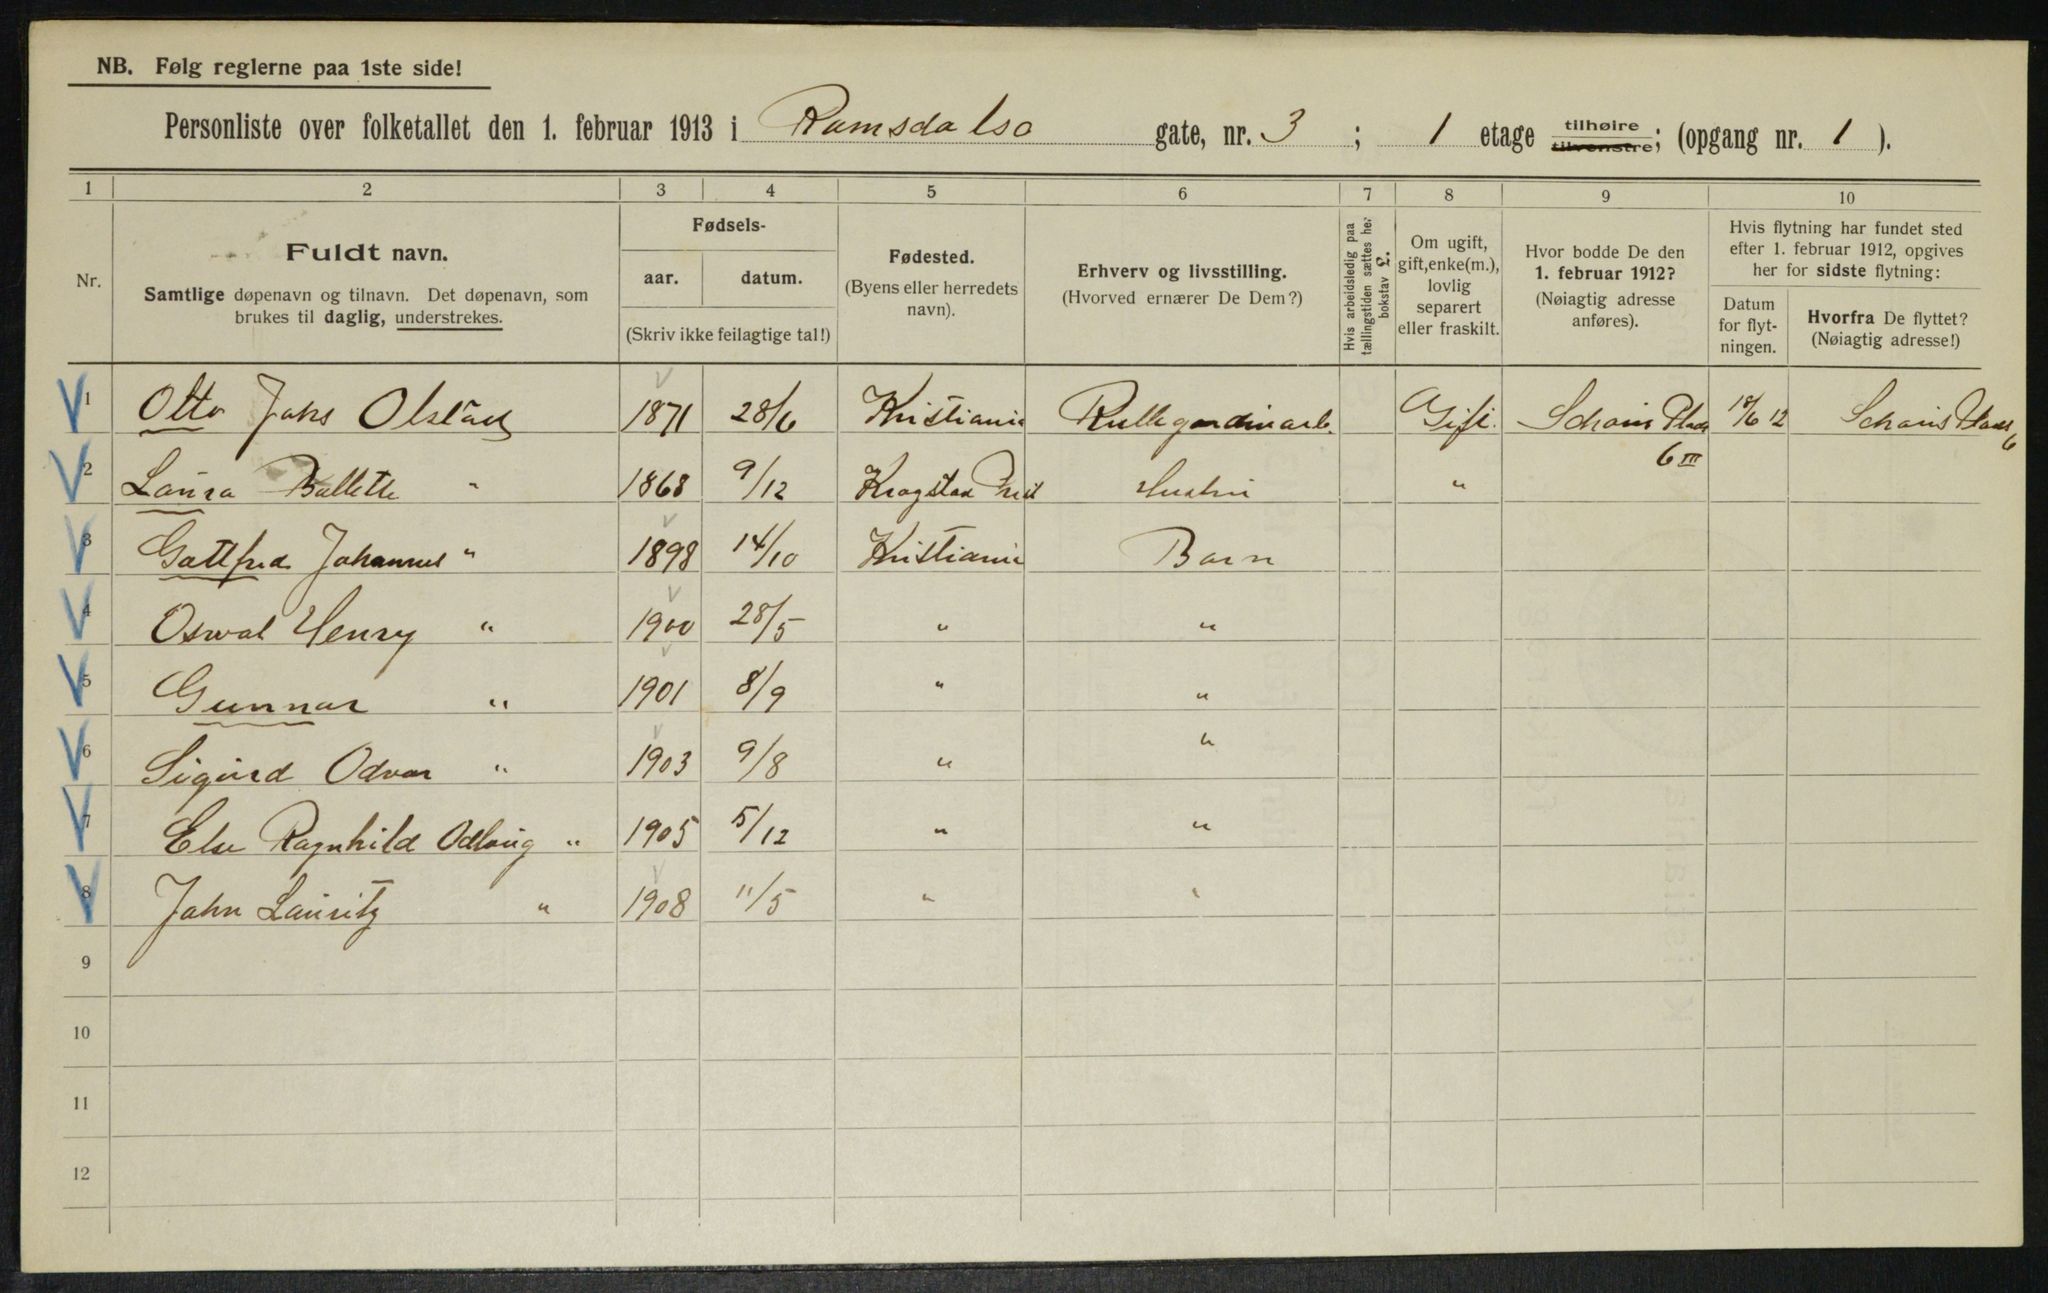 NB. Følg reglerne paa 1ste side!
Personliste over folketallet den 1. februar 1913 i Romsdalsa gate, nr. 3 ; 1 etage tilhøire tilvenstre; (opgang nr. 1 ).
1 2 3 4 5 6 7 8 9 10
Nr.
Fuldt navn.
Samtlige døpenavn og tilnavn. Det døpenavn, som
brukes til daglig, understrekes.
Fødsels-
aar. datum.
(Skriv ikke feilagtige tal!)
Fødested.
(Byens eller herredets
navn).
Erhverv og livsstilling.
(Hvorved ernærer De Dem?)
Hvis arbeidsledig paa
tællingstiden sættes her
bokstav L.
Om ugift,
gift, enke(m.),
lovlig
separert
eller fraskilt.
Hvor bodde De den
1. februar 1912?
(Nøiagtig adresse
anføres).
Hvis flytning har fundet sted
efter 1. februar 1912, opgives
her for sidste flytning:
Datum
for flyt-
ningen.
Hvorfra De flyttet?
(Nøiagtig adresse!)
1 Otto Johs Olstad 1871 28/6 Kristiania Rullegardinarb. Gift. Schous Plads 6 III 18/6 12 Schous Plads 6
2 Laura Bollette " 1868 9/12 Kragstad Hustru "
3 Gottfred Johannes " 1898 14/10 Kristiania Barn
4 Oswal Henry " 1900 28/5 " "
5 Gunnar " 1901 8/9 " "
6 Sigurd Odvar " 1903 9/8 " "
7 Else Ragnhild Odlaug " 1905 5/12 " "
8 John Lauritz " 1908 11/5 " "
9
10
11
12